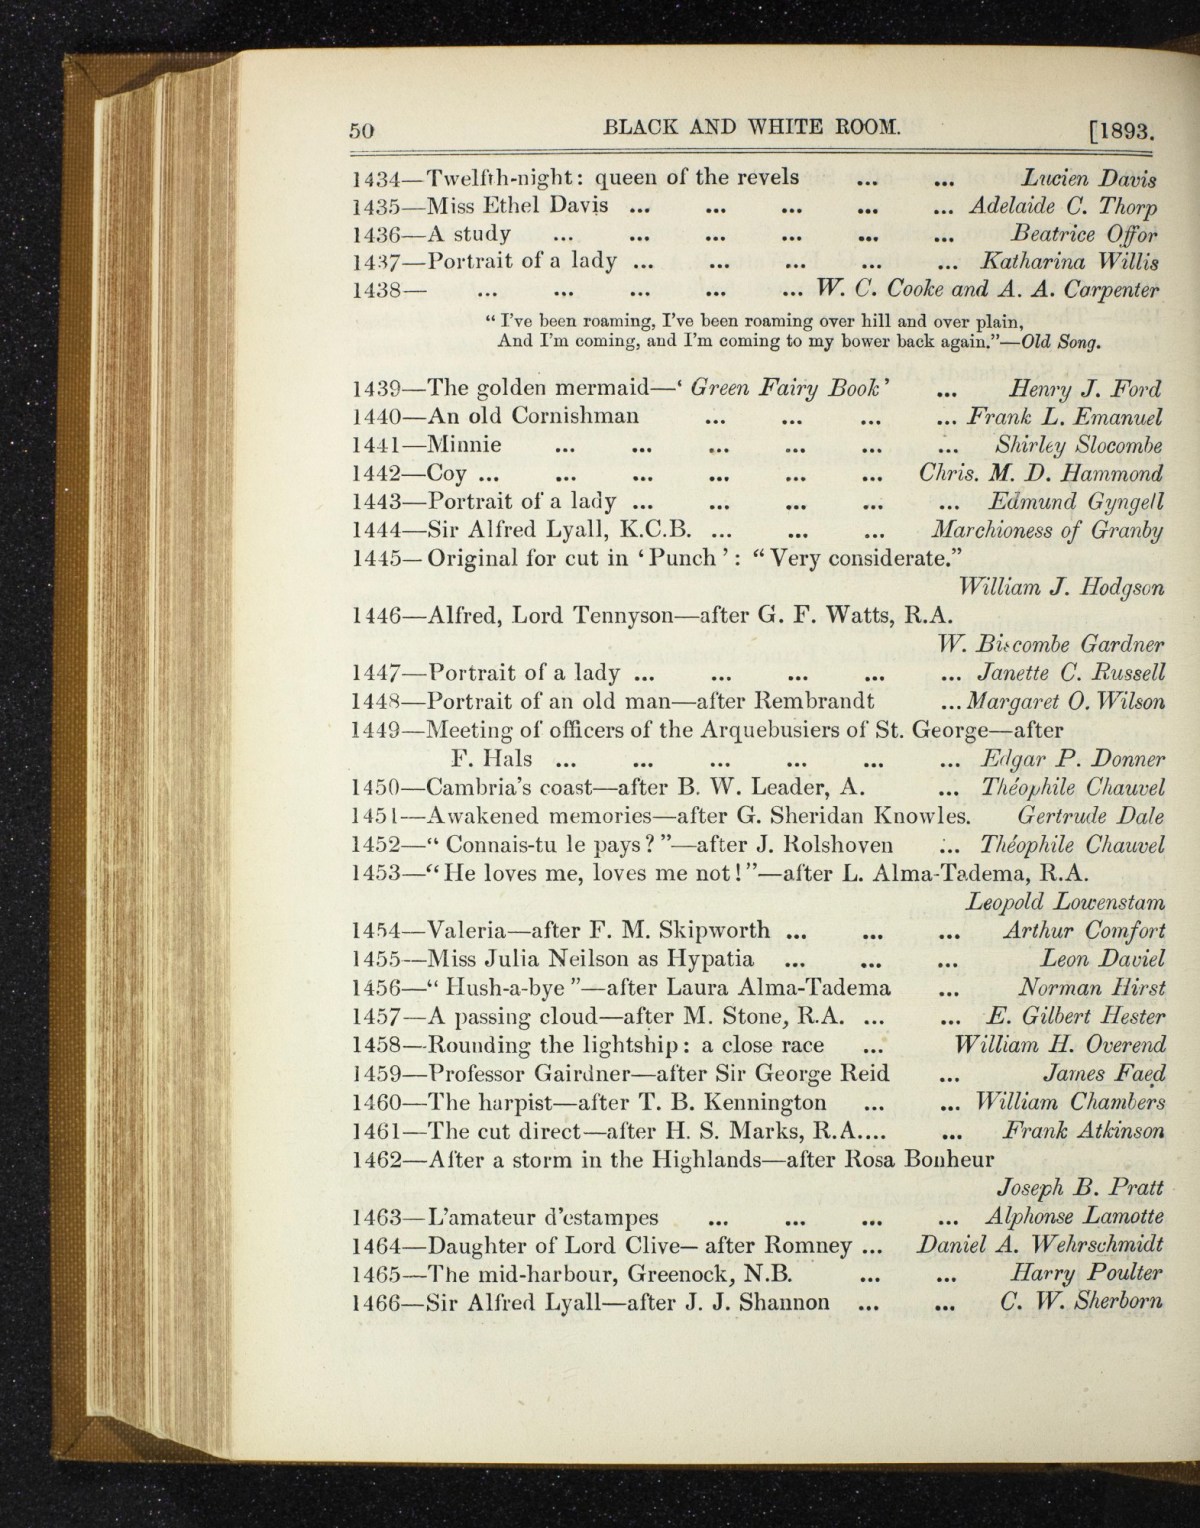 50 BLACK AND WHITE ROOM. [1893.
1434—Twelfth-night: queen of the revels ... ... Lucien Davis
1435—Miss Ethel Davis ... ... ... ... ... Adelaide C. Thorp
1436—A study ... ... ... ... ... ... Beatrice Offor
1437—Portrait of a lady ... ... ... ... ... Katharina Willis
1438— ... ... ... ... ... W. C. Cooke and A. A. Carpenter
“ I’ve been roaming, I’ve been roaming over hill and over plain,
And I’m coming, and I’m coming to my bower back again.”—Old Song.
1439—The golden mermaid—‘ Green Fairy Book’ ... Henry J. Ford
1440—An old Cornishman ... ... ... ... Frank L. Emanuel
1441—Minnie ... ... ... ... ... ... Shirley Slocombe
1442—Coy ... ... ... ... ... ... Chris. M. D. Hammond
1443—Portrait of a lady ... ... ... ... ... Edmund Gyngell
1444—Sir Alfred Lyall, K.C.B. ... ... ... Marchioness of Granby
1445—Original for cut in ‘Punch’: “Very considerate.”
William J. Hodgson
1446—Alfred, Lord Tennyson—after G. F. Watts, R.A.
W. Biscombe Gardner
1447—Portrait of a lady ... ... ... ... ... Janette C. Russell
1448—Portrait of an old man—after Rembrandt ... Margaret O. Wilson
1449—Meeting of officers of the Arquebusiers of St. George—after
F. Hals ... ... ... ... ... ... Edgar P. Donner
1450—Cambria’s coast—after B. W. Leader, A. ... Théophile Chauvel
1451—Awakened memories—after G. Sheridan Knowles. Gertrude Dale
1452—“ Connais-tu le pays?”—after J. Rolshoven ... Théophile Chauvel
1453—“He loves me, loves me not!”—after L. Alma-Tadema, R.A.
Leopold Lowenstam
1454—Valeria—after F. M. Skipworth ... ... ... Arthur Comfort
1455—Miss Julia Neilson as Hypatia ... ... ... Leon Daviel
1456—“ Hush-a-bye ”—after Laura Alma-Tadema ... Norman Hirst
1457—A passing cloud—after M. Stone, R.A. ... ... E. Gilbert Hester
1458—Rounding the lightship: a close race ... William H. Overend
1459—Professor Gairdner—after Sir George Reid ... James Faed
1460—The harpist—after T. B. Kennington ... ... William Chambers
1461—The cut direct—after H. S. Marks, R.A.... ... Frank Atkinson
1462—After a storm in the Highlands—after Rosa Bonheur
Joseph B. Pratt
1463—L’amateur d’estampes ... ... ... ... Alphonse Lamotte
1464—Daughter of Lord Clive—after Romney ... Daniel A. Wehrschmidt
1465—The mid-harbour, Greenock, N.B. ... ... Harry Poulter
1466—Sir Alfred Lyall—after J. J. Shannon ... ... C. W. Sherborn